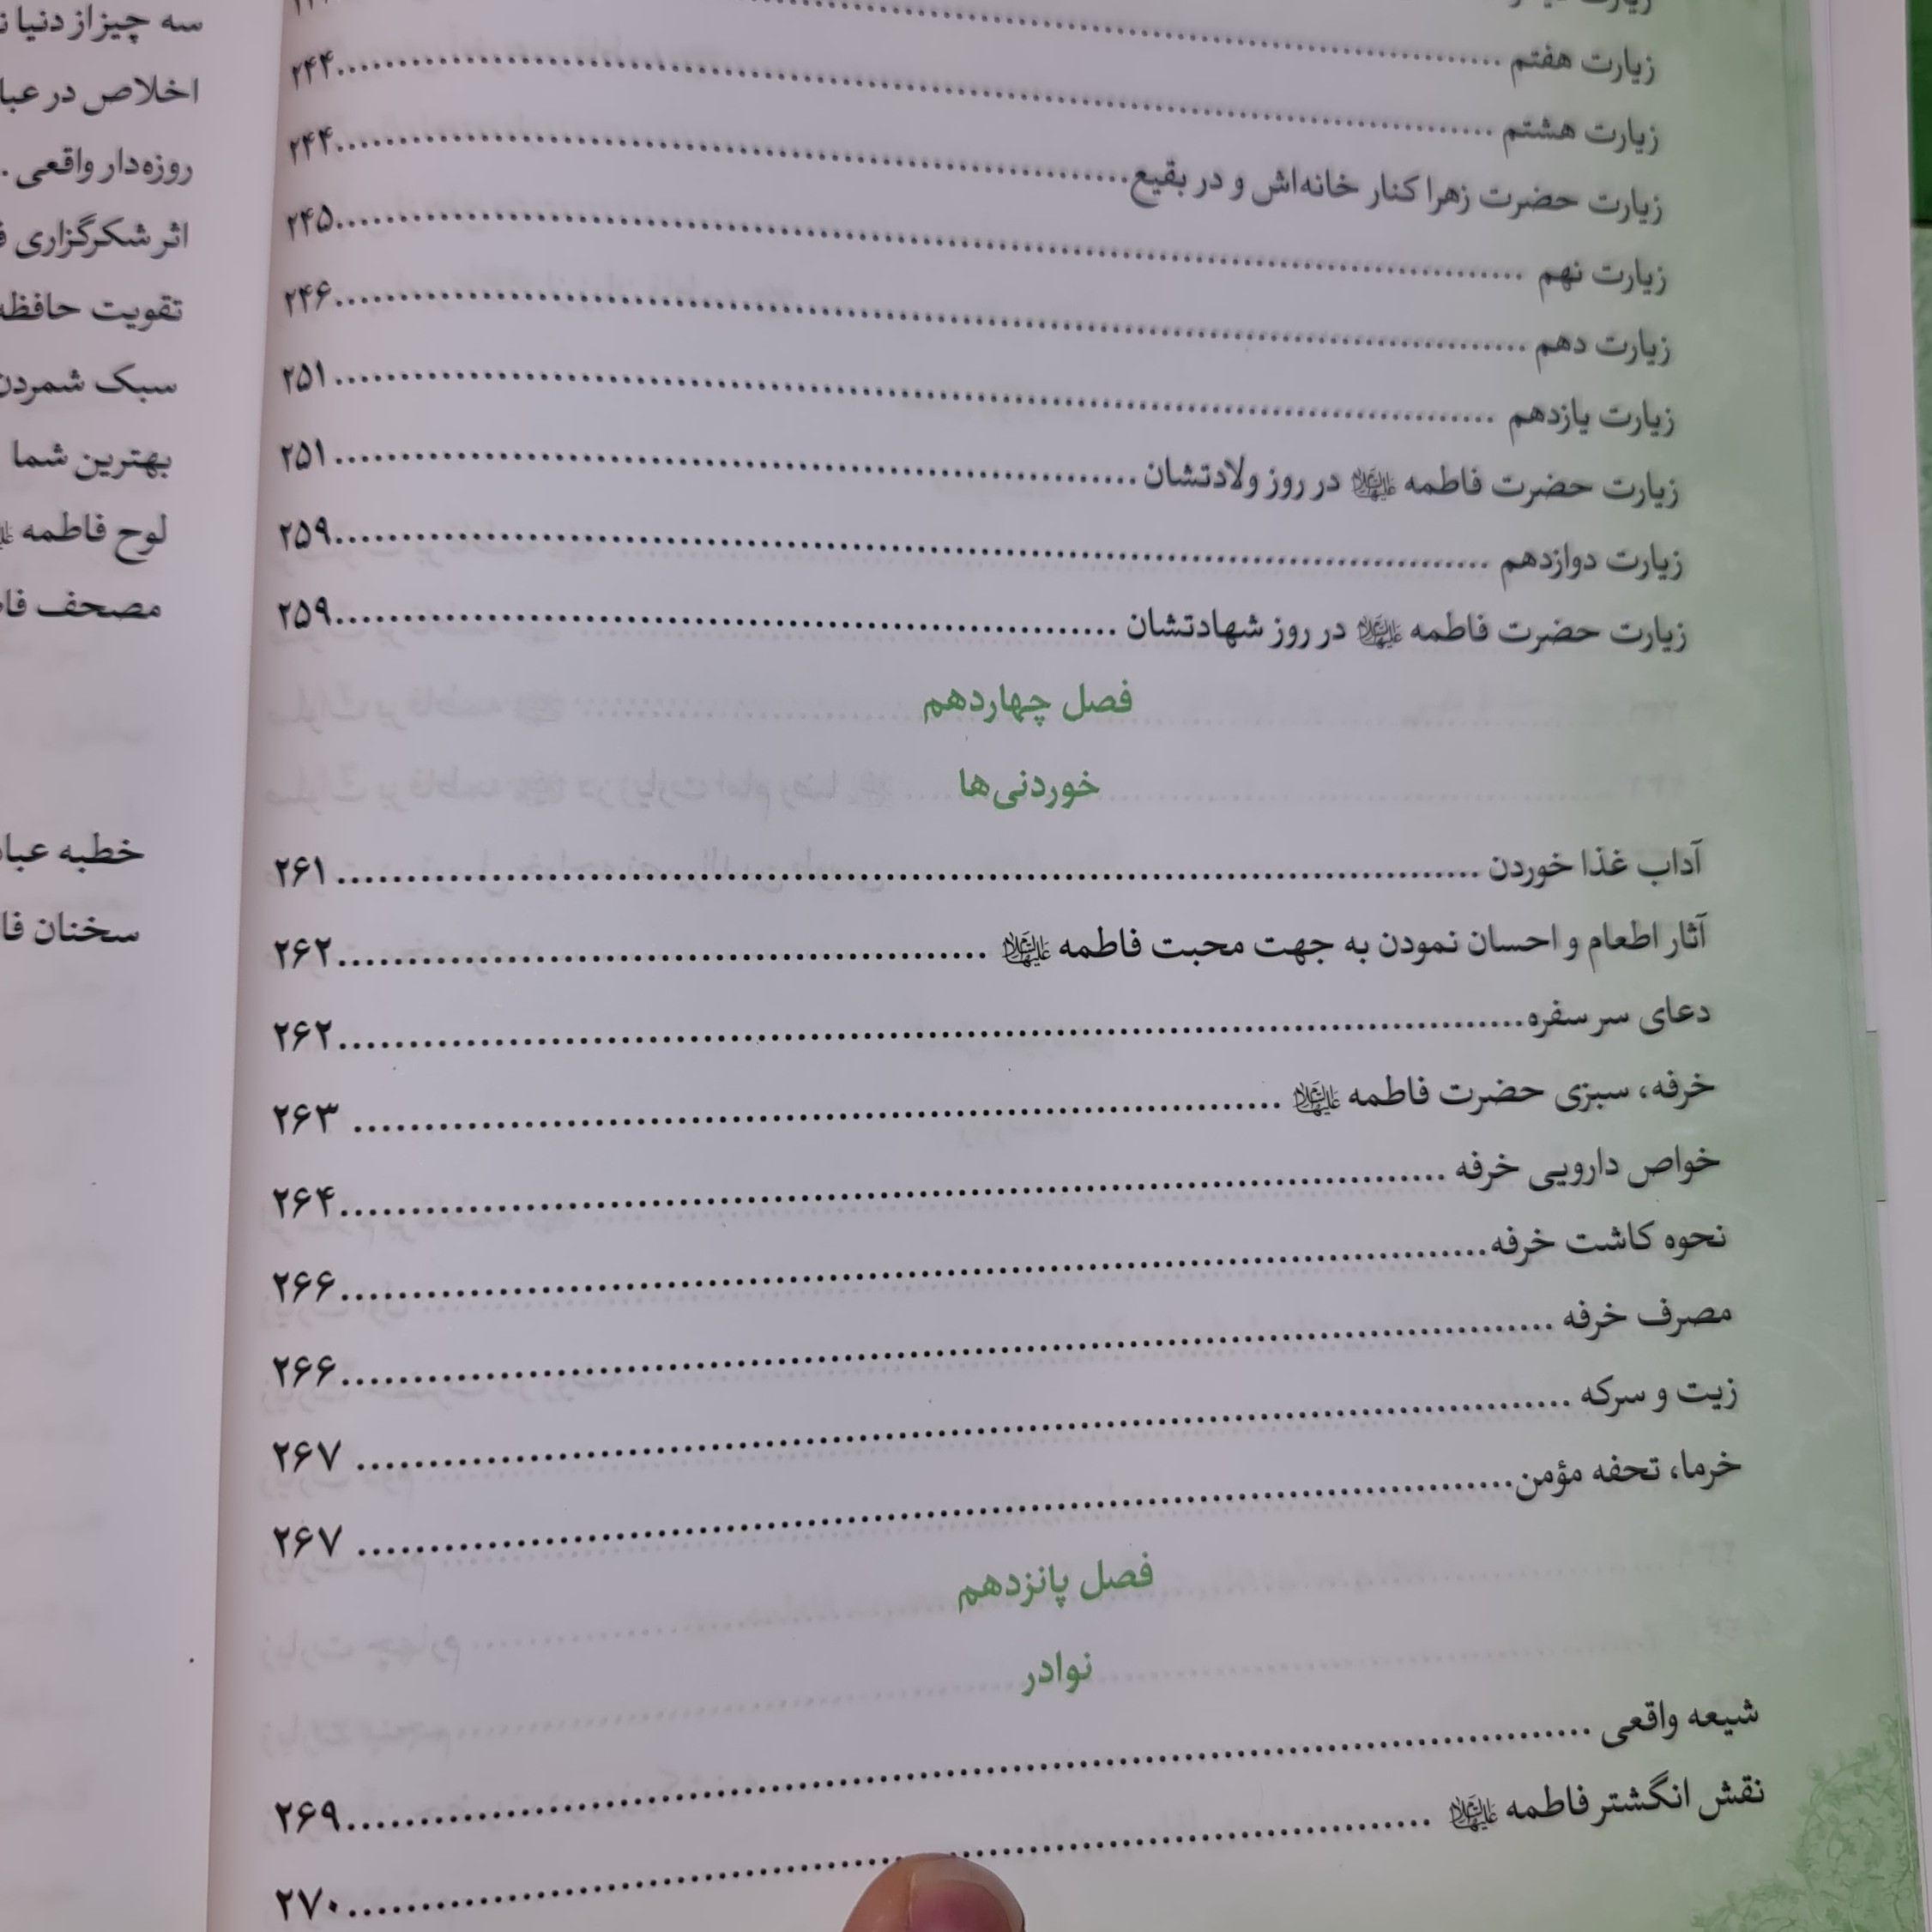 زیارت هفتم ..........
زیارت هشتم ..........۲۴۴
زیارت حضرت زهرا کنار خانه‌اش و در بقیع..........۲۴۴
زیارت نهم ..........۲۴۵
زیارت دهم ..........۲۴۶
زیارت یازدهم ..........۲۵۱
زیارت حضرت فاطمه علیها السلام در روز ولادتشان ..........۲۵۱
زیارت دوازدهم ..........۲۵۹
زیارت حضرت فاطمه علیها السلام در روز شهادتشان ..........۲۵۹
فصل چهاردهم
خوردنی‌ها
آداب غذا خوردن ..........۲۶۱
آثار اطعام و احسان نمودن به جهت محبت فاطمه علیها السلام ..........۲۶۲
دعای سر سفره..........۲۶۲
خرفه، سبزی حضرت فاطمه علیها السلام ..........۲۶۳
خواص دارویی خرفه ..........۲۶۴
نحوه کاشت خرفه..........۲۶۶
مصرف خرفه ..........۲۶۶
زیت و سرکه ..........۲۶۷
خرما، تحفه مؤمن..........۲۶۷
فصل پانزدهم
نوادر
شیعه واقعی ..........۲۶۹
نقش انگشتر فاطمه علیها السلام ..........۲۷۰
سه چیز از دنیا
اخلاص در
روزه‌دار واقعی .
اثر شکرگزاری
تقویت حافظه
سبک شمردن
بهترین شما
لوح فاطمه
مصحف
خطبه
سخنان